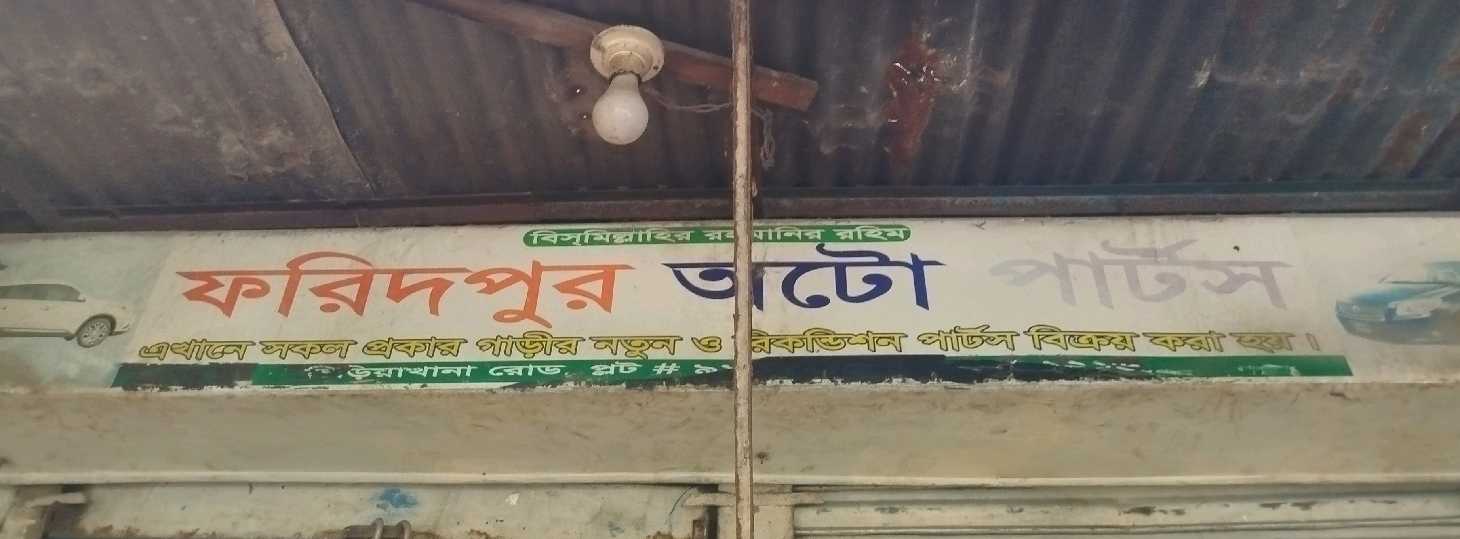 বিস্‌মিল্লাহির রহমানির রহিম
ফরিদপুর অটো পার্টস
এখানে সকল প্রকার গাড়ীর নতুন ও রিকন্ডিশন পার্টস বিক্রয় করা হয়।
রোড, প্লট #